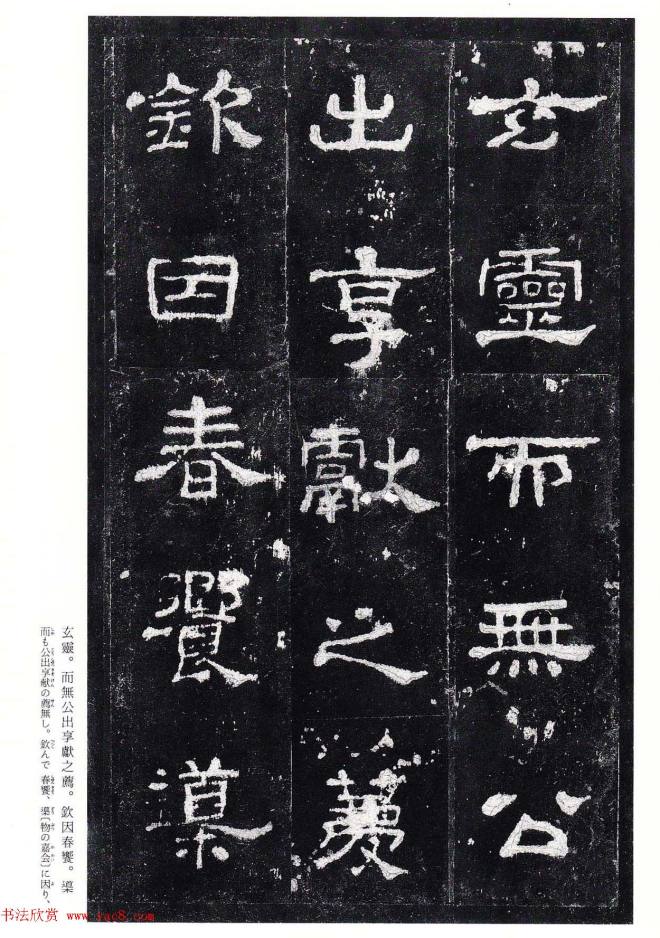 玄靈而無公
出享獻之薦
欽因春饗䆃
玄靈。而無公出享獻之薦。欽因春饗。䆃
而も公出享献の薦無し。欽んで春饗、䆃〔物の嘉会〕に因り、
书法欣赏 www.yac8.com